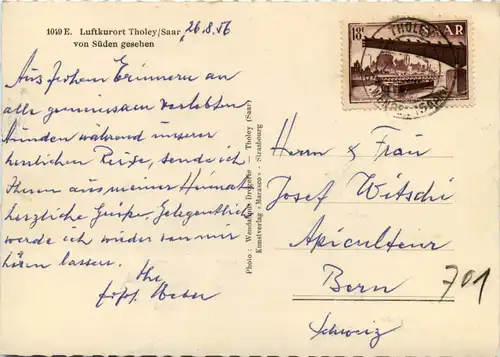 1019 E. Luftkurort Tholey/Saar
von Süden gesehen
26.8.56
Aus frohem Erinnern an
alle gemeinsam verlebten
Stunden während unserer
herrlichen Reise, sende ich
Ihnen aus meiner Heimat
herzliche Grüße. Gelegentlich
werde ich wieder von mir
hören lassen.
Ihr
Weber
Photo: Wendalinus Drogerie - Tholey (Saar)
Kunstverlag «Marasco» - Strasbourg
18F SAAR
THOLEY
Herrn & Frau
Josef Witschi
Apiculteur
Bern
701
Schweiz